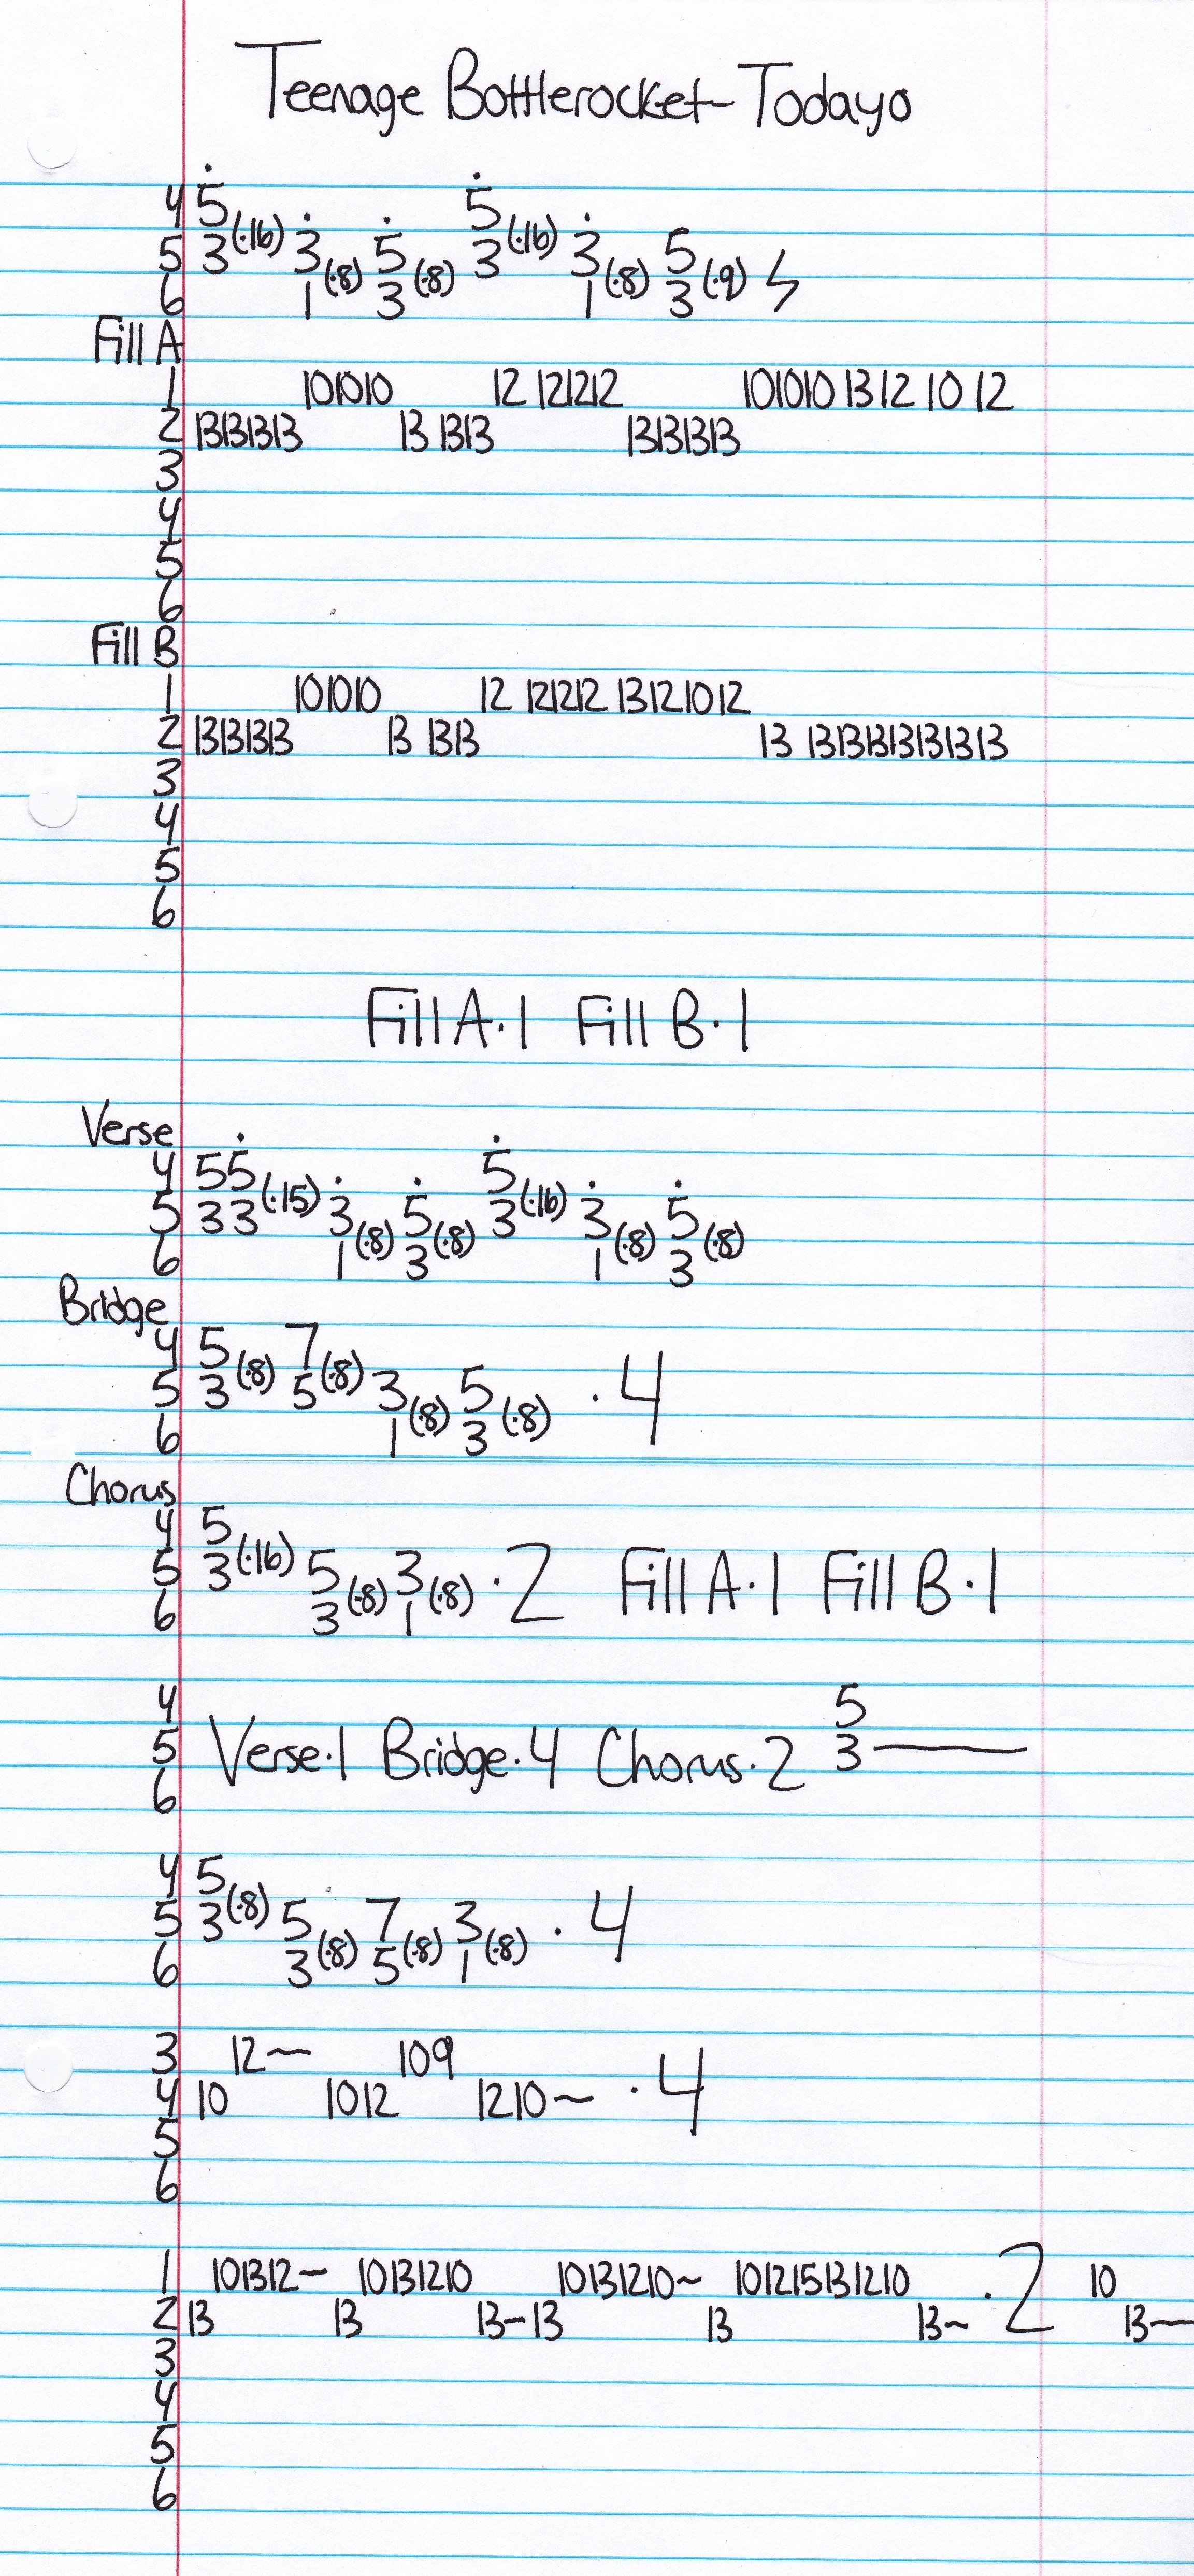 Teenage Bottlerocket-Todayo
4 5 5
5 3(·16) 3 5 3(·16) 3 5
6 1(·8) 3(·8) 1(·8) 3(·9)
Fill A
1 101010 12 121212 101010 13 12 10 12
2 13131313 13 1313 13131313
3
4
5
6
Fill B
1 101010 12 121212 13121012
2 13131313 13 1313 13 1313131313131313
3
4
5
6
Fill A·1 Fill B·1
Verse
4 55 5
5 33(·15) 3 5 3(·16) 3 5
6 1(·8) 3(·8) 1(·8) 3(·8)
Bridge
4 5 7
5 3(·8) 5(·8) 3 5 ·4
6 1(·8) 3(·8)
Chorus
4 5
5 3(·16) 5 3 ·2 Fill A·1 Fill B·1
6 3(·8) 1(·8)
4 5
5 Verse·1 Bridge·4 Chorus·2 3—
6
4 5
5 3(·8) 5 7 3 ·4
6 3(·8) 5(·8) 1(·8)
3 12~ 109
4 10 1012 1210~ ·4
5
6
1 101312~ 10131210 10131210~ 101215131210 ·2 10
2 13 13 13-13 13 13~ 13~
3
4
5
6